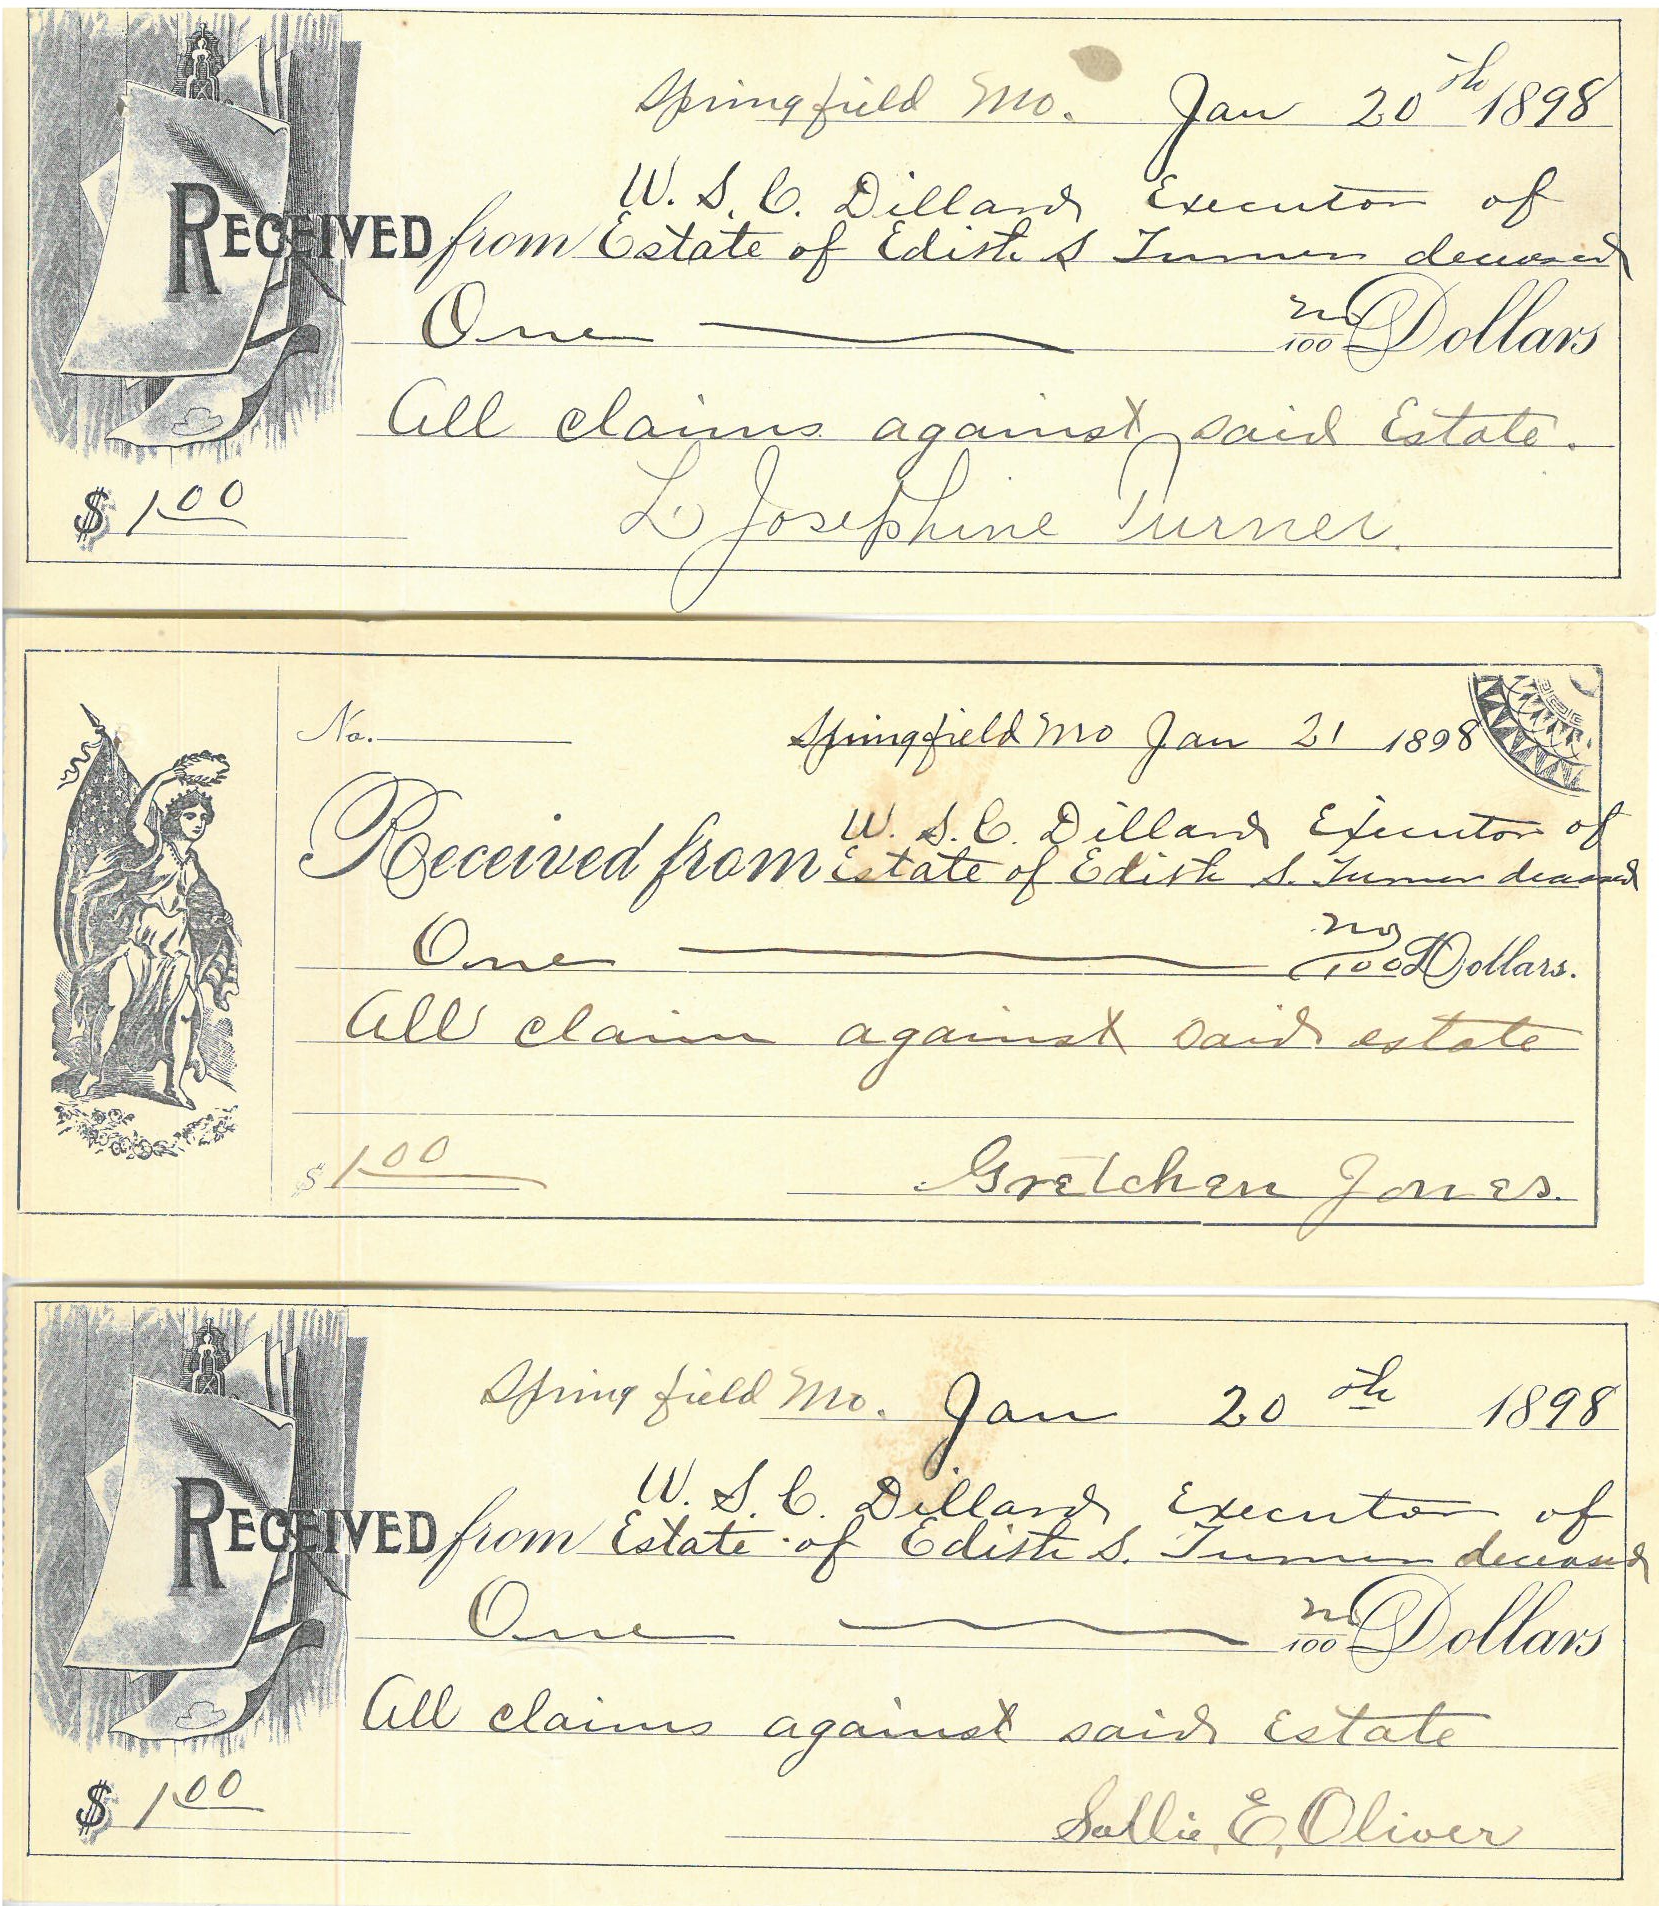 Springfield Mo. Jan 20th 1898
W. S. C. Dillard Executor of
RECEIVED from Estate of Edith S Turner deceased
One no/100 Dollars
All claims against said Estate.
$ 1.00
L Josephine Turner.
No.
Springfield Mo Jan 21 1898
W. S. C. Dillard Executor of
Received from Estate of Edith S. Turner deceased
One no/100 Dollars.
All claim against said estate
$ 1.00
Gretchen Jones.
Springfield Mo. Jan 20th 1898
W. S. C. Dillard Executor of
RECEIVED from Estate of Edith S. Turner deceased
One no/100 Dollars
All claims against said Estate
$ 1.00
Sallie E. Oliver